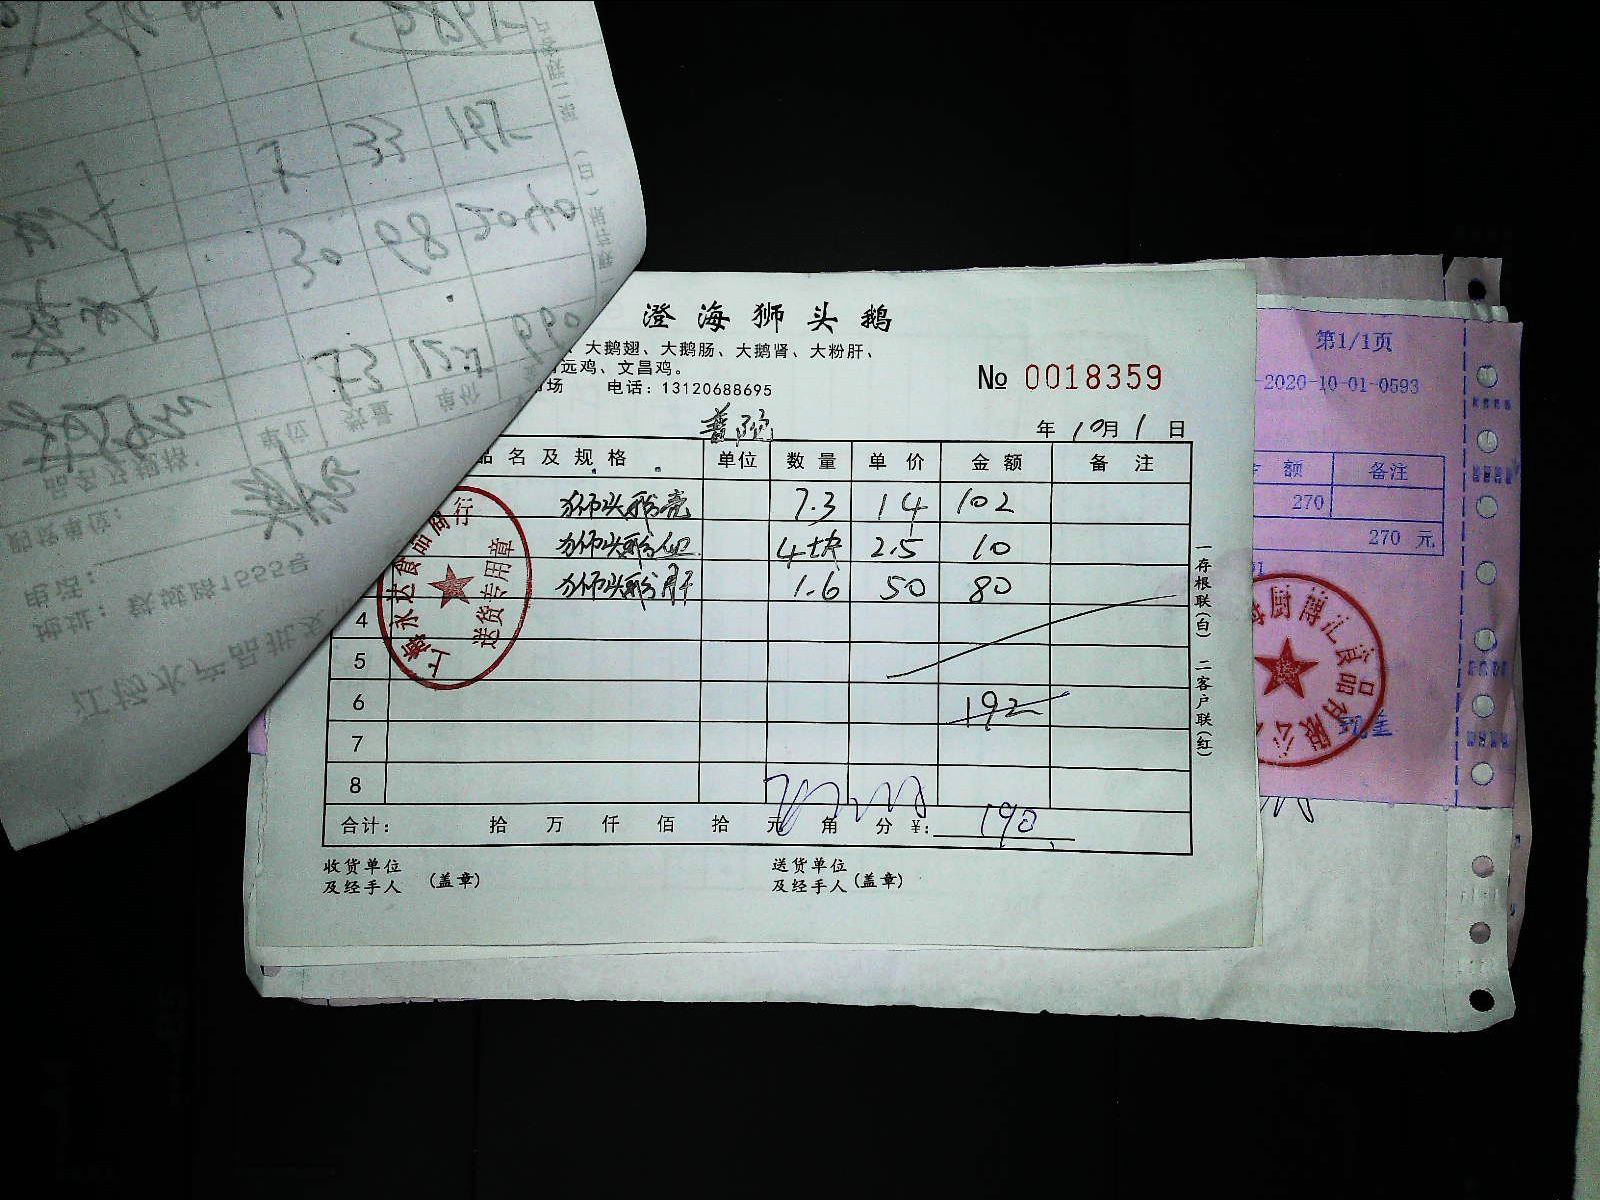 澄海狮头鹅
、大鹅翅、大鹅肠、大鹅肾、大粉肝、
远鸡、文昌鸡。
场 电话：13120688695
№ 0018359
普陀
年 10月 1 日
品名及规格 单位 数量 单价 金额 备注
狮头鹅壳 7.3 14 102
狮头鹅血 4块 2.5 10
狮头鹅肝 1.6 50 80
4
5
6 192
7
8
合计： 拾 万 仟 佰 拾 元 角 分 ¥: 190
收货单位
及经手人 (盖章)
送货单位
及经手人 (盖章)
一存根联(白) 二客户联(红)
上海永达食品商行
送货专用章
第1/1页
-2020-10-01-0593
额 备注
270
270 元
厨博汇食品有限公
江杨水产品批发
地址：铁城路1555号
电话：
购货单位：
品名及规格 单位 数量 单价
73
30 68 2040
7 33